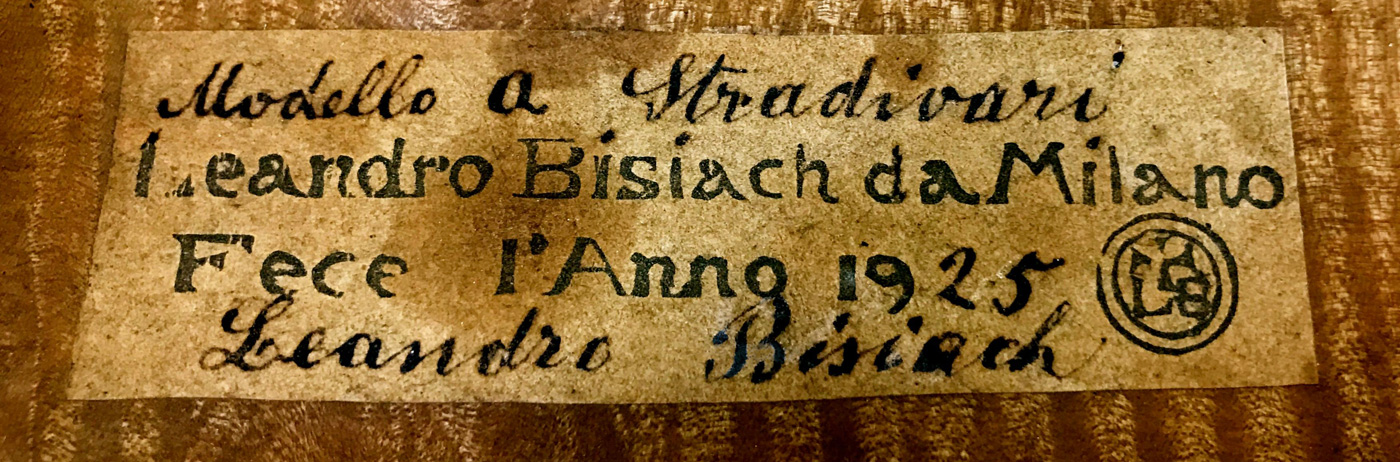 Modello a Stradivari
Leandro Bisiach da Milano
Fece l'Anno 1925
Leandro Bisiach